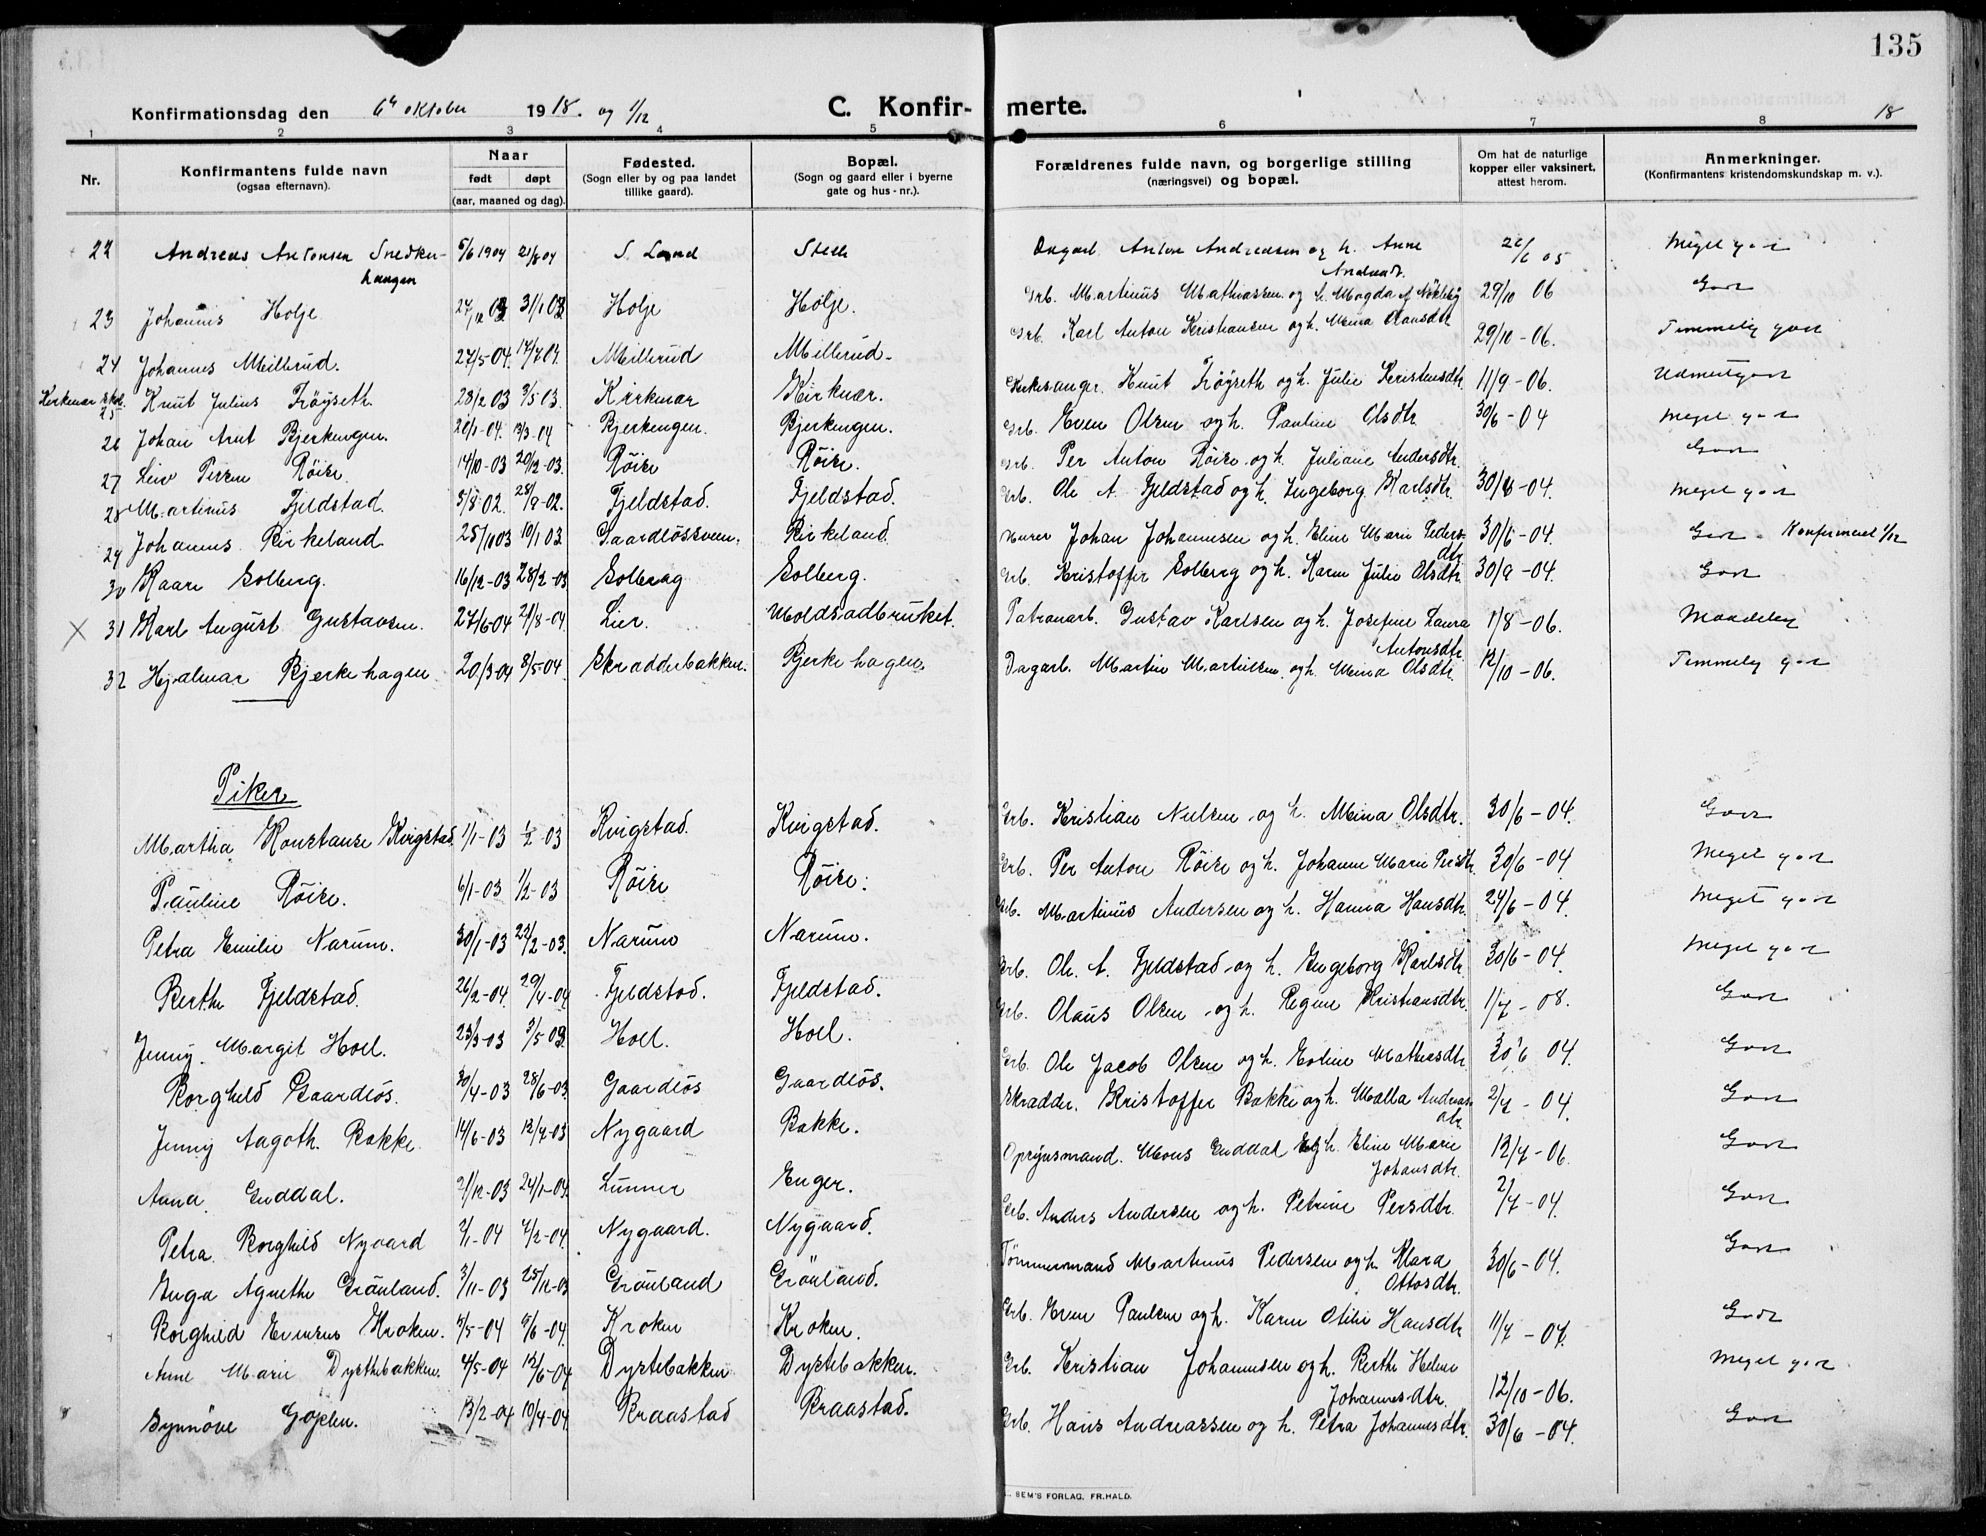 135
Konfirmationsdag den 6te oktober 1918. og 1/12 C. Konfirmerte. 18
1 2 3 4 5 6 7 8
Nr. Konfirmantens fulde navn (ogsaa efternavn). Naar født døpt (aar, maaned og dag). Fødested. (Sogn eller by og paa landet tillike gaard). Bopæl. (Sogn og gaard eller i byerne gate og hus-nr.). Forældrenes fulde navn, og borgerlige stilling (næringsvei) og bopæl. Om hat de naturlige kopper eller vaksinert, attest herom. Anmerkninger. (Konfirmantens kristendomskundskap m. v.).
22 Andreas Antonsen Snedkerhaugen 5/6 1904 21/8 04 S. Land Anton Andreassen og h. Anne Andersdt. 05 Meget godt
23 Johannes Holje 31/1 03 Holje Holje. Grb. Martinus Mathiassen og h. Magda 29/10 06 Godt
24 Johannes Millerud. 27/5-04. 17/7 04. Millerud Millerud. Grb. Karl Anton Kristiansen og h. Mina Olausdtr 29/10-06. Temmelig godt
Kirkenær skol. 25 Knut Julius Frøyseth 28/2 03 3/5 03. Kirkenær Kirkenær. Kirkesanger Knut Frøyseth og h. Julie Kristensdtr 11/9-06. Udmerket godt
26 Johan Arnt Bjerkengen. 20/1-04. 13/3-04 Bjerkengen. Bjerkengen. Grb. Even Olsen og h. Pauline Olsdtr 30/6-04 Meget godt
27 Leiv Persen Röise. 14/10-03 20/12-03. Röise Röise. Grb. Per Anton Röise og h. Juliane Andersdtr. Godt
28 Martinus Fjeldstad. 3/8 02. 28/9-02. Fjeldstad. Fjeldstad. Grb. Ole A. Fjeldstad og h. Ingeborg Karlsdtr. 30/6-04. Meget godt
29 Johannes Birkeland 25/10 03 10/1 03. Gaardlössveen. Birkeland. Murer Johan Johannesen og h. Eline Marie Pedersdtr 30/6-04. Godt. Konfirmeret 1/12
30 Kaare Solberg. 16/12-03 28/2-03 Solberg Solberg. Grb. Kristoffer Solberg og h. Karen Julie Olsdtr 30/9-04. Godt
X 31 Karl August Gustavsen. 27/6-04 21/8-04. Lier. Woldsadbruket. Patronarb. Gustav Karlsen og h. Josefine Laura Antonsdtr 1/8-06. Maadelig
32 Hjalmar Bjerkehagen 20/3-04 8/5-04 Skradderbakken. Bjerkehagen. Dagarb. Martin Martinsen og h. Mina Olsdtr. 12/10-06. Temmelig godt
Piker
Martha Konstanse Kvigstad. 1/1-03 1/2-03 Kvigstad. Kvigstad. Grb. Kristian Nielsen og h. Mina Olsdtr. 30/6-04. Godt
Pauline Röise. 6/1-03 1/2-03 Röise Röise. Grb. Per Anton Röise og h. Johanne Marie Persdtr. 30/6-04 Meget godt
Petra Emilie Narum. 30/1-03 22/2-03. Narum Narum. Grb. Martinus Andersen og h. Hanna Hansdtr. 24/6-04. Meget godt
Berthe Fjeldstad. 26/2-04. 29/4-04 Fjeldstad. Fjeldstad. Grb. Ole A. Fjeldstad og h. Engeborg Karlsdtr. 30/6-04. Meget godt
Jenny Margit Hoel. 23/3-03 3/5-03. Hoel. Hoel. Grb. Olaus Olsen og h. Regine Kristiansdtr. 1/7-08. Godt
Borghild Gaardlös. 30/4-03 28/6-03 Gaardlös Gaardlös. Grb. Ole Jacob Olsen og h. Eline Mathiasdtr. 30/6 04. Godt
Jenny Aagoth Bakke. 14/6-03 12/7-03 Nygaard Bakke. Skradder. Kristoffer Bakke og h. Malla Andreasdtr. 2/7-04. Godt
Anna Enddal. 21/12-03 24/1-04. Lunner Enger. Opsynsmand. Mons Enddal og h. Eline Marie Johansdtr. 12/7-06. Godt
Petra Borghild Nygaard 2/1-04 7/2-04. Nygaard. Nygaard. Grb. Anders Andersen og h. Petrine Persdtr. 2/7-04. Godt
Inga Agnethe Grönland. 3/11-03 25/12-03 Grönland Grönland. Tömmermand Martinus Pedersen og h. Klara Ottosdtr. 30/6-04. Godt
Borghild Kroken. 5/5-04 5/6-04. Kroken Kroken. Grb. Even Paulsen og h. Karen Otilie Hansdtr 11/7-04. Godt
Anne Marie Dysthebakken. 4/5-04 12/6-04 Dystebakken Dystebakken. Grb. Kristian Johannesen og h. Berthe Helene Johannesdtr. 12/10-06. Meget godt
Synnöve Gajelen. 13/2-04 10/4-04. Braastad Braastad. Grb. Hans Andreassen og h. Petra Johannesdtr. 30/6-04. Godt
SEM'S FORLAG. FR.HALD.